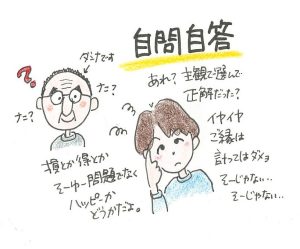 自問自答
ダンナです
ナニ?
ナニ?
損とか得とか
そーゆー問題でなく
ハッピーか
どうかだよ。
あれ?主観で選んで
正解だった?
イヤイヤ
ご縁は
計ってはダメョ
そーじゃない…
そーじゃない…